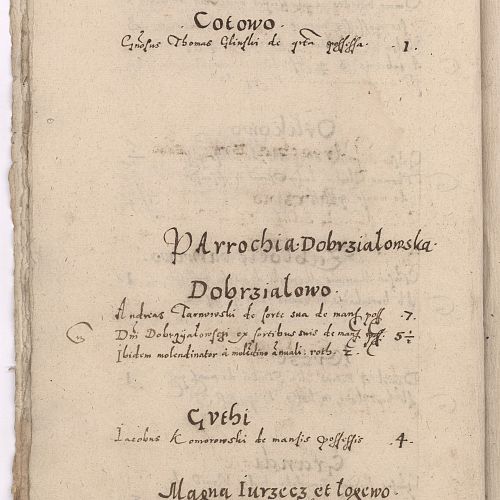 Cotowo.
Gnosus Thomas Glinski de pta possessa. 1.
PArrochia Dobrzialowska.
Dobrzialowo.
Andreas Tarnowski de sorte sua de mans poss .7.
Dni Dobrzyalowsczi ex sortibus suis de mans poss. 5½
Ibidem molendinator à molendino annuali. roth. 2.
Guthi
Iacobus Komorowski de mansis possessis .4.
Magna Iurzecz et logewo